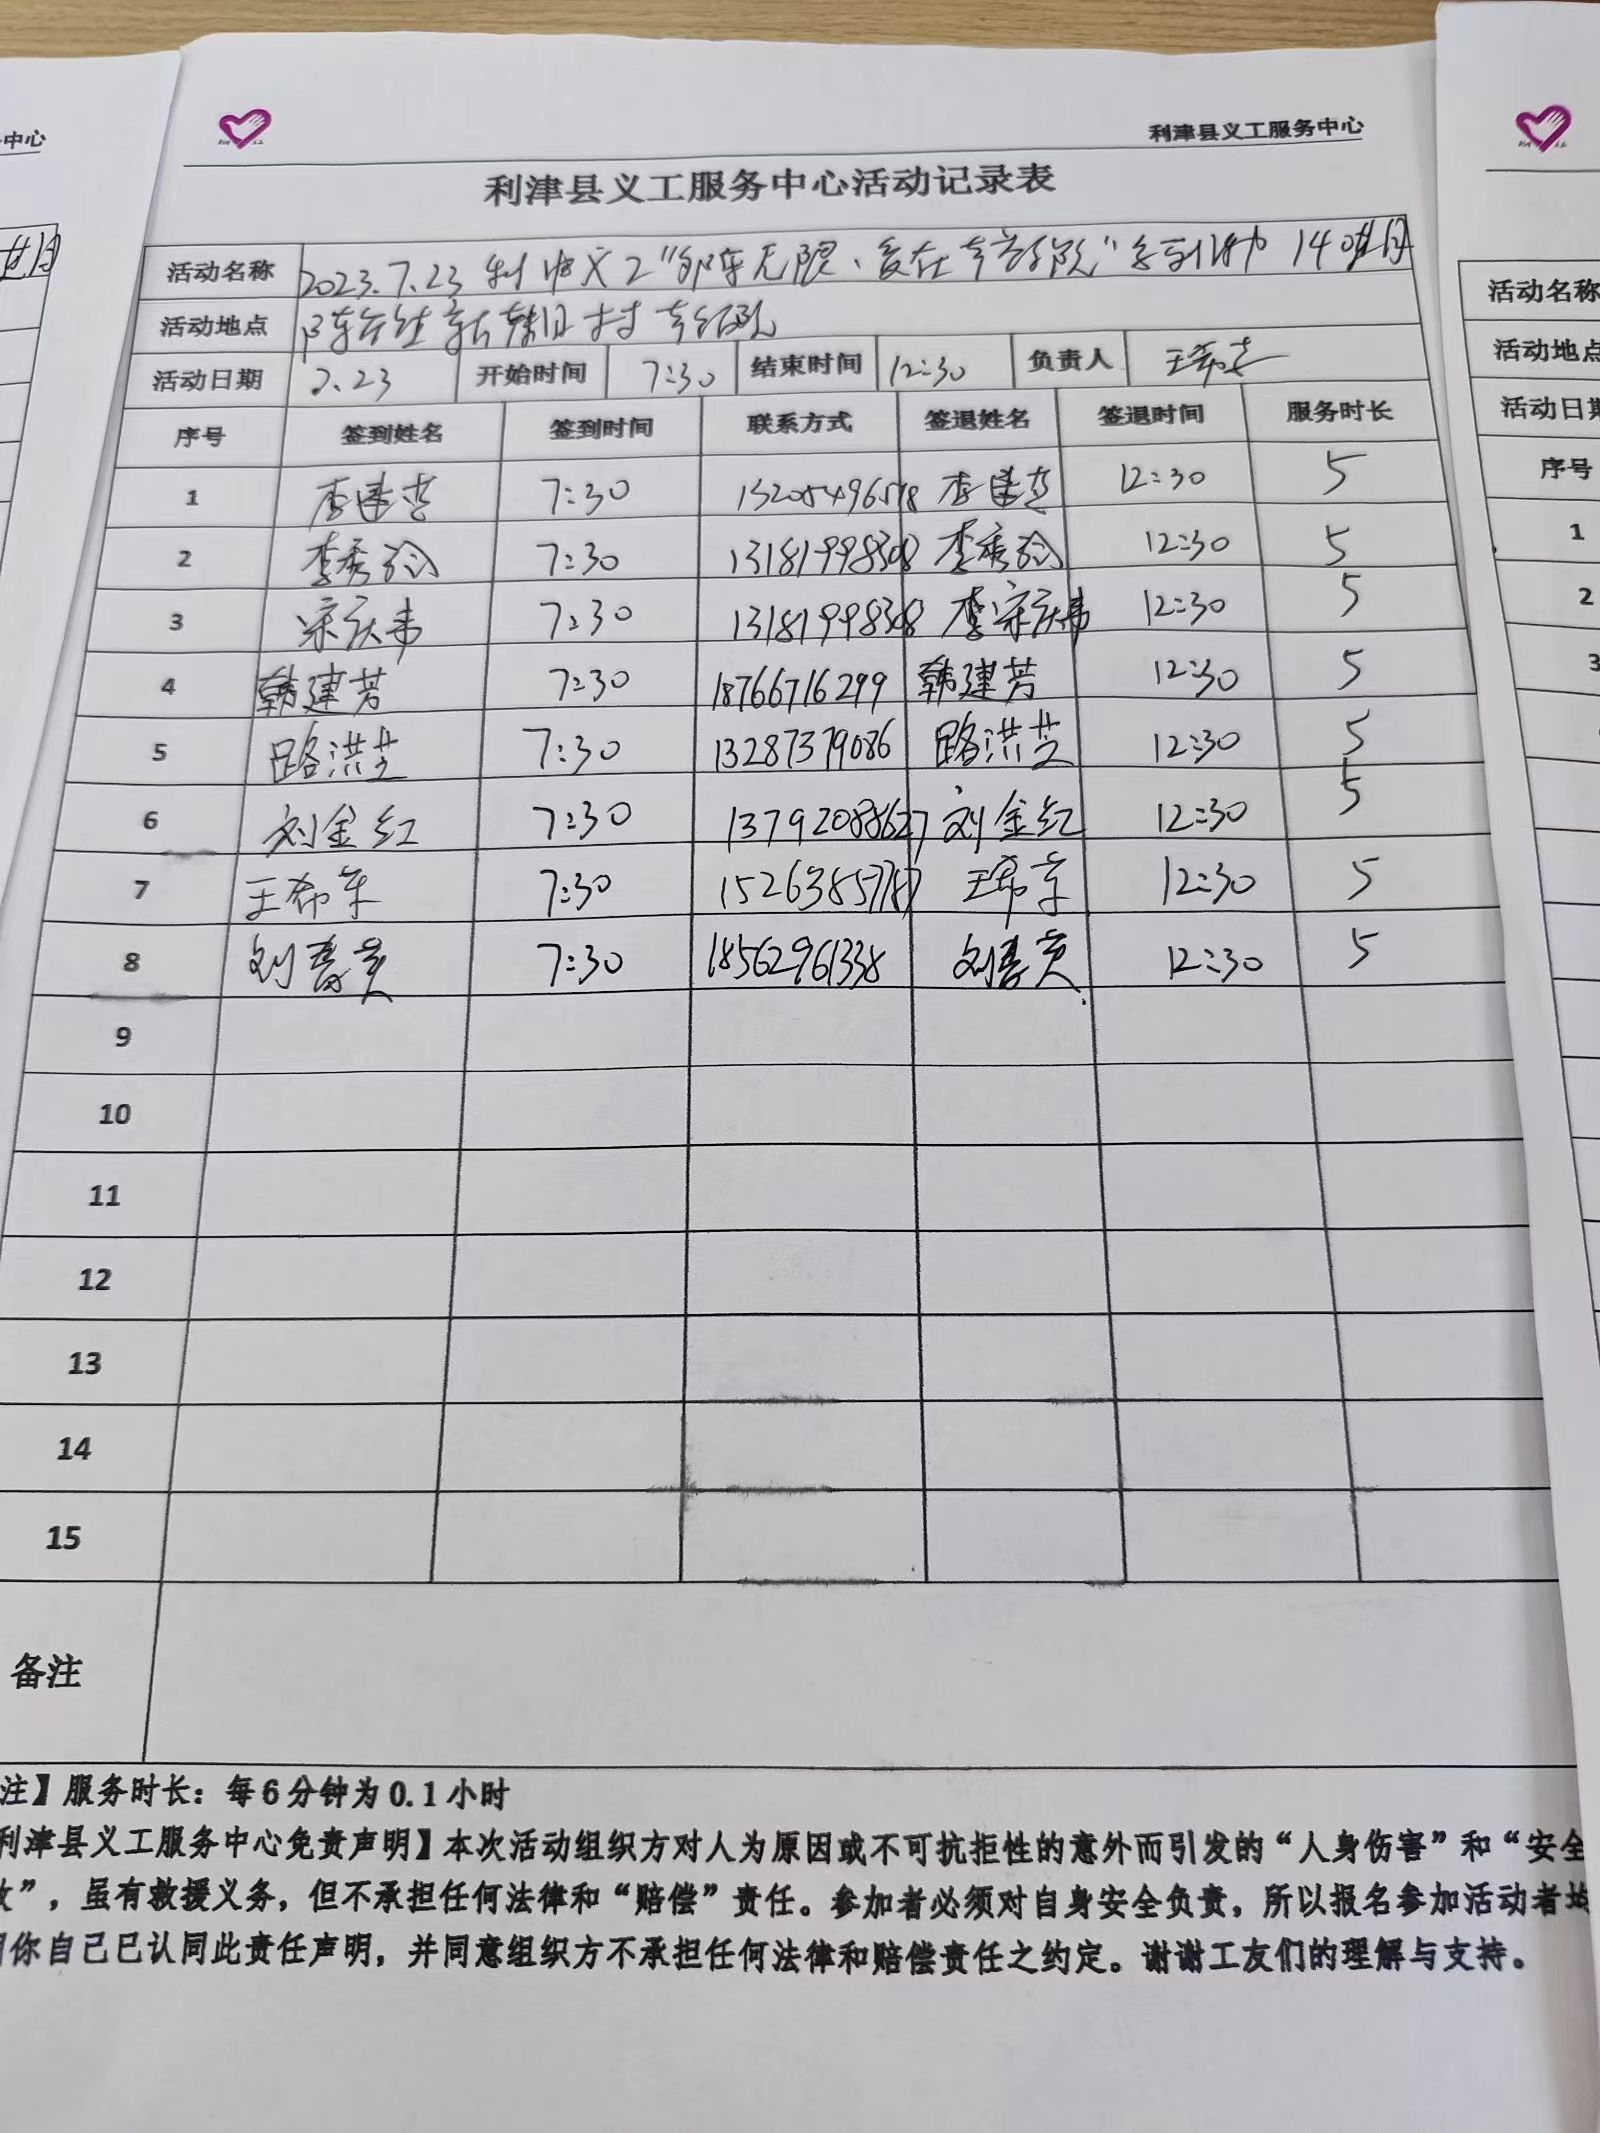 中心
利津县义工服务中心
利津县义工服务中心活动记录表
活动名称 2023.7.23 利津义工“ 无限、爱在幸福院” 14
活动地点 陈庄 村幸福院
活动日期 7.23 开始时间 7:30 结束时间 12:30 负责人 王希
序号 签到姓名 签到时间 联系方式 签退姓名 签退时间 服务时长
1 李建 7:30 李建 12:30 5
2 李秀 7:30 13181998308 李秀 12:30 5
3 宋庆 7:30 13181998308 李宋庆 12:30 5
4 韩建芳 7:30 18766716299 韩建芳 12:30 5
5 路洪芝 7:30 13287379086 路洪芝 12:30 5
6 刘金红 7:30 13792088627 刘金红 12:30 5
7 王希 7:30 15263857787 王希 12:30 5
8 刘 7:30 18562961338 刘 12:30 5
9
10
11
12
13
14
15
备注
注】服务时长：每6分钟为0.1小时
利津县义工服务中心免责声明】本次活动组织方对人为原因或不可抗拒性的意外而引发的“人身伤害”和“安全
故”，虽有救援义务，但不承担任何法律和“赔偿”责任。参加者必须对自身安全负责，所以报名参加活动者均
你自己已认同此责任声明，并同意组织方不承担任何法律和赔偿责任之约定。谢谢工友们的理解与支持。
活动名称
活动地点
活动日期
序号
1
2
3